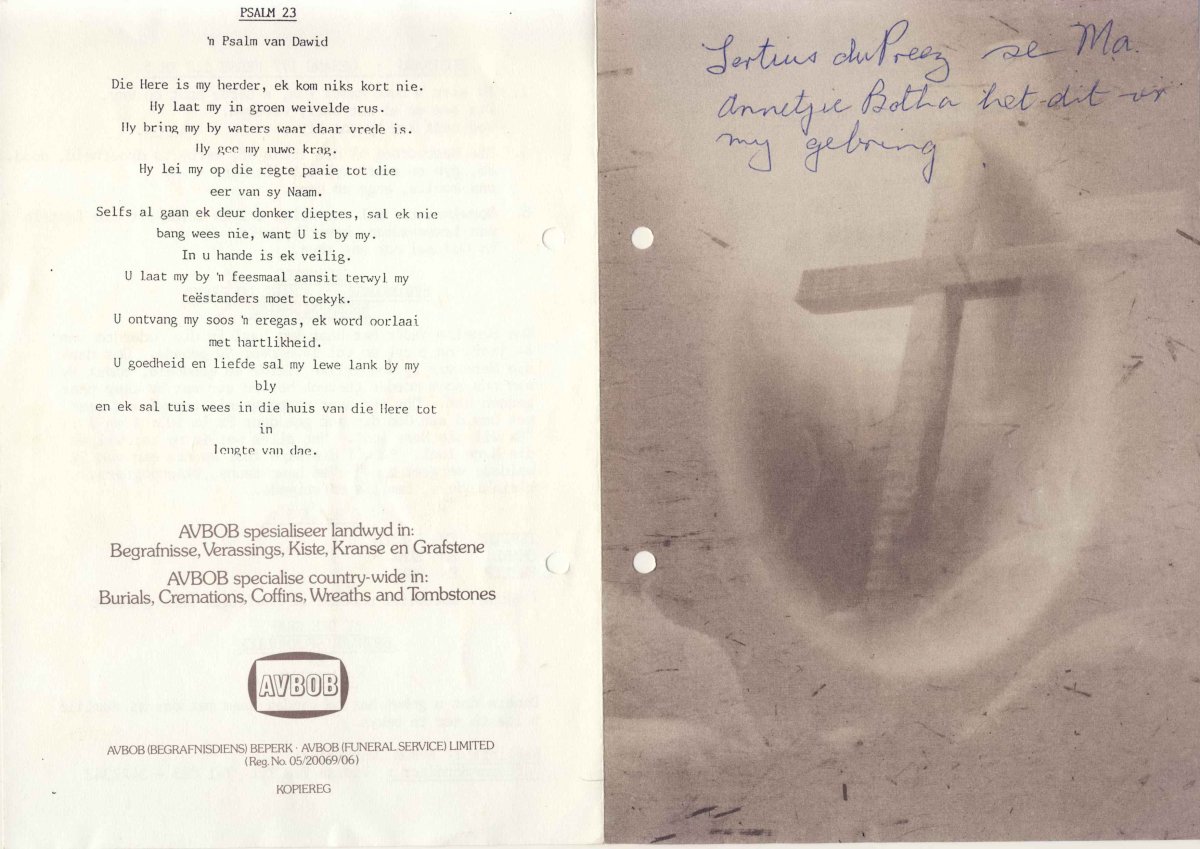 PSALM 23
'n Psalm van Dawid
Die Here is my herder, ek kom niks kort nie.
Hy laat my in groen weivelde rus.
Hy bring my by waters waar daar vrede is.
Hy gee my nuwe krag.
Hy lei my op die regte paaie tot die
eer van sy Naam.
Selfs al gaan ek deur donker dieptes, sal ek nie
bang wees nie, want U is by my.
In u hande is ek veilig.
U laat my by 'n feesmaal aansit terwyl my
teëstanders moet toekyk.
U ontvang my soos 'n eregas, ek word oorlaai
met hartlikheid.
U goedheid en liefde sal my lewe lank by my
bly
en ek sal tuis wees in die huis van die Here tot
in
lengte van dae.
AVBOB spesialiseer landwyd in:
Begrafnisse, Verassings, Kiste, Kranse en Grafstene
AVBOB specialise country-wide in:
Burials, Cremations, Coffins, Wreaths and Tombstones
AVBOB
AVBOB (BEGRAFNISDIENS) BEPERK · AVBOB (FUNERAL SERVICE) LIMITED
(Reg. No. 05/20069/06)
KOPIEREG
Sertius du Preez se Ma.
Annetjie Botha het dit vir
my gebring